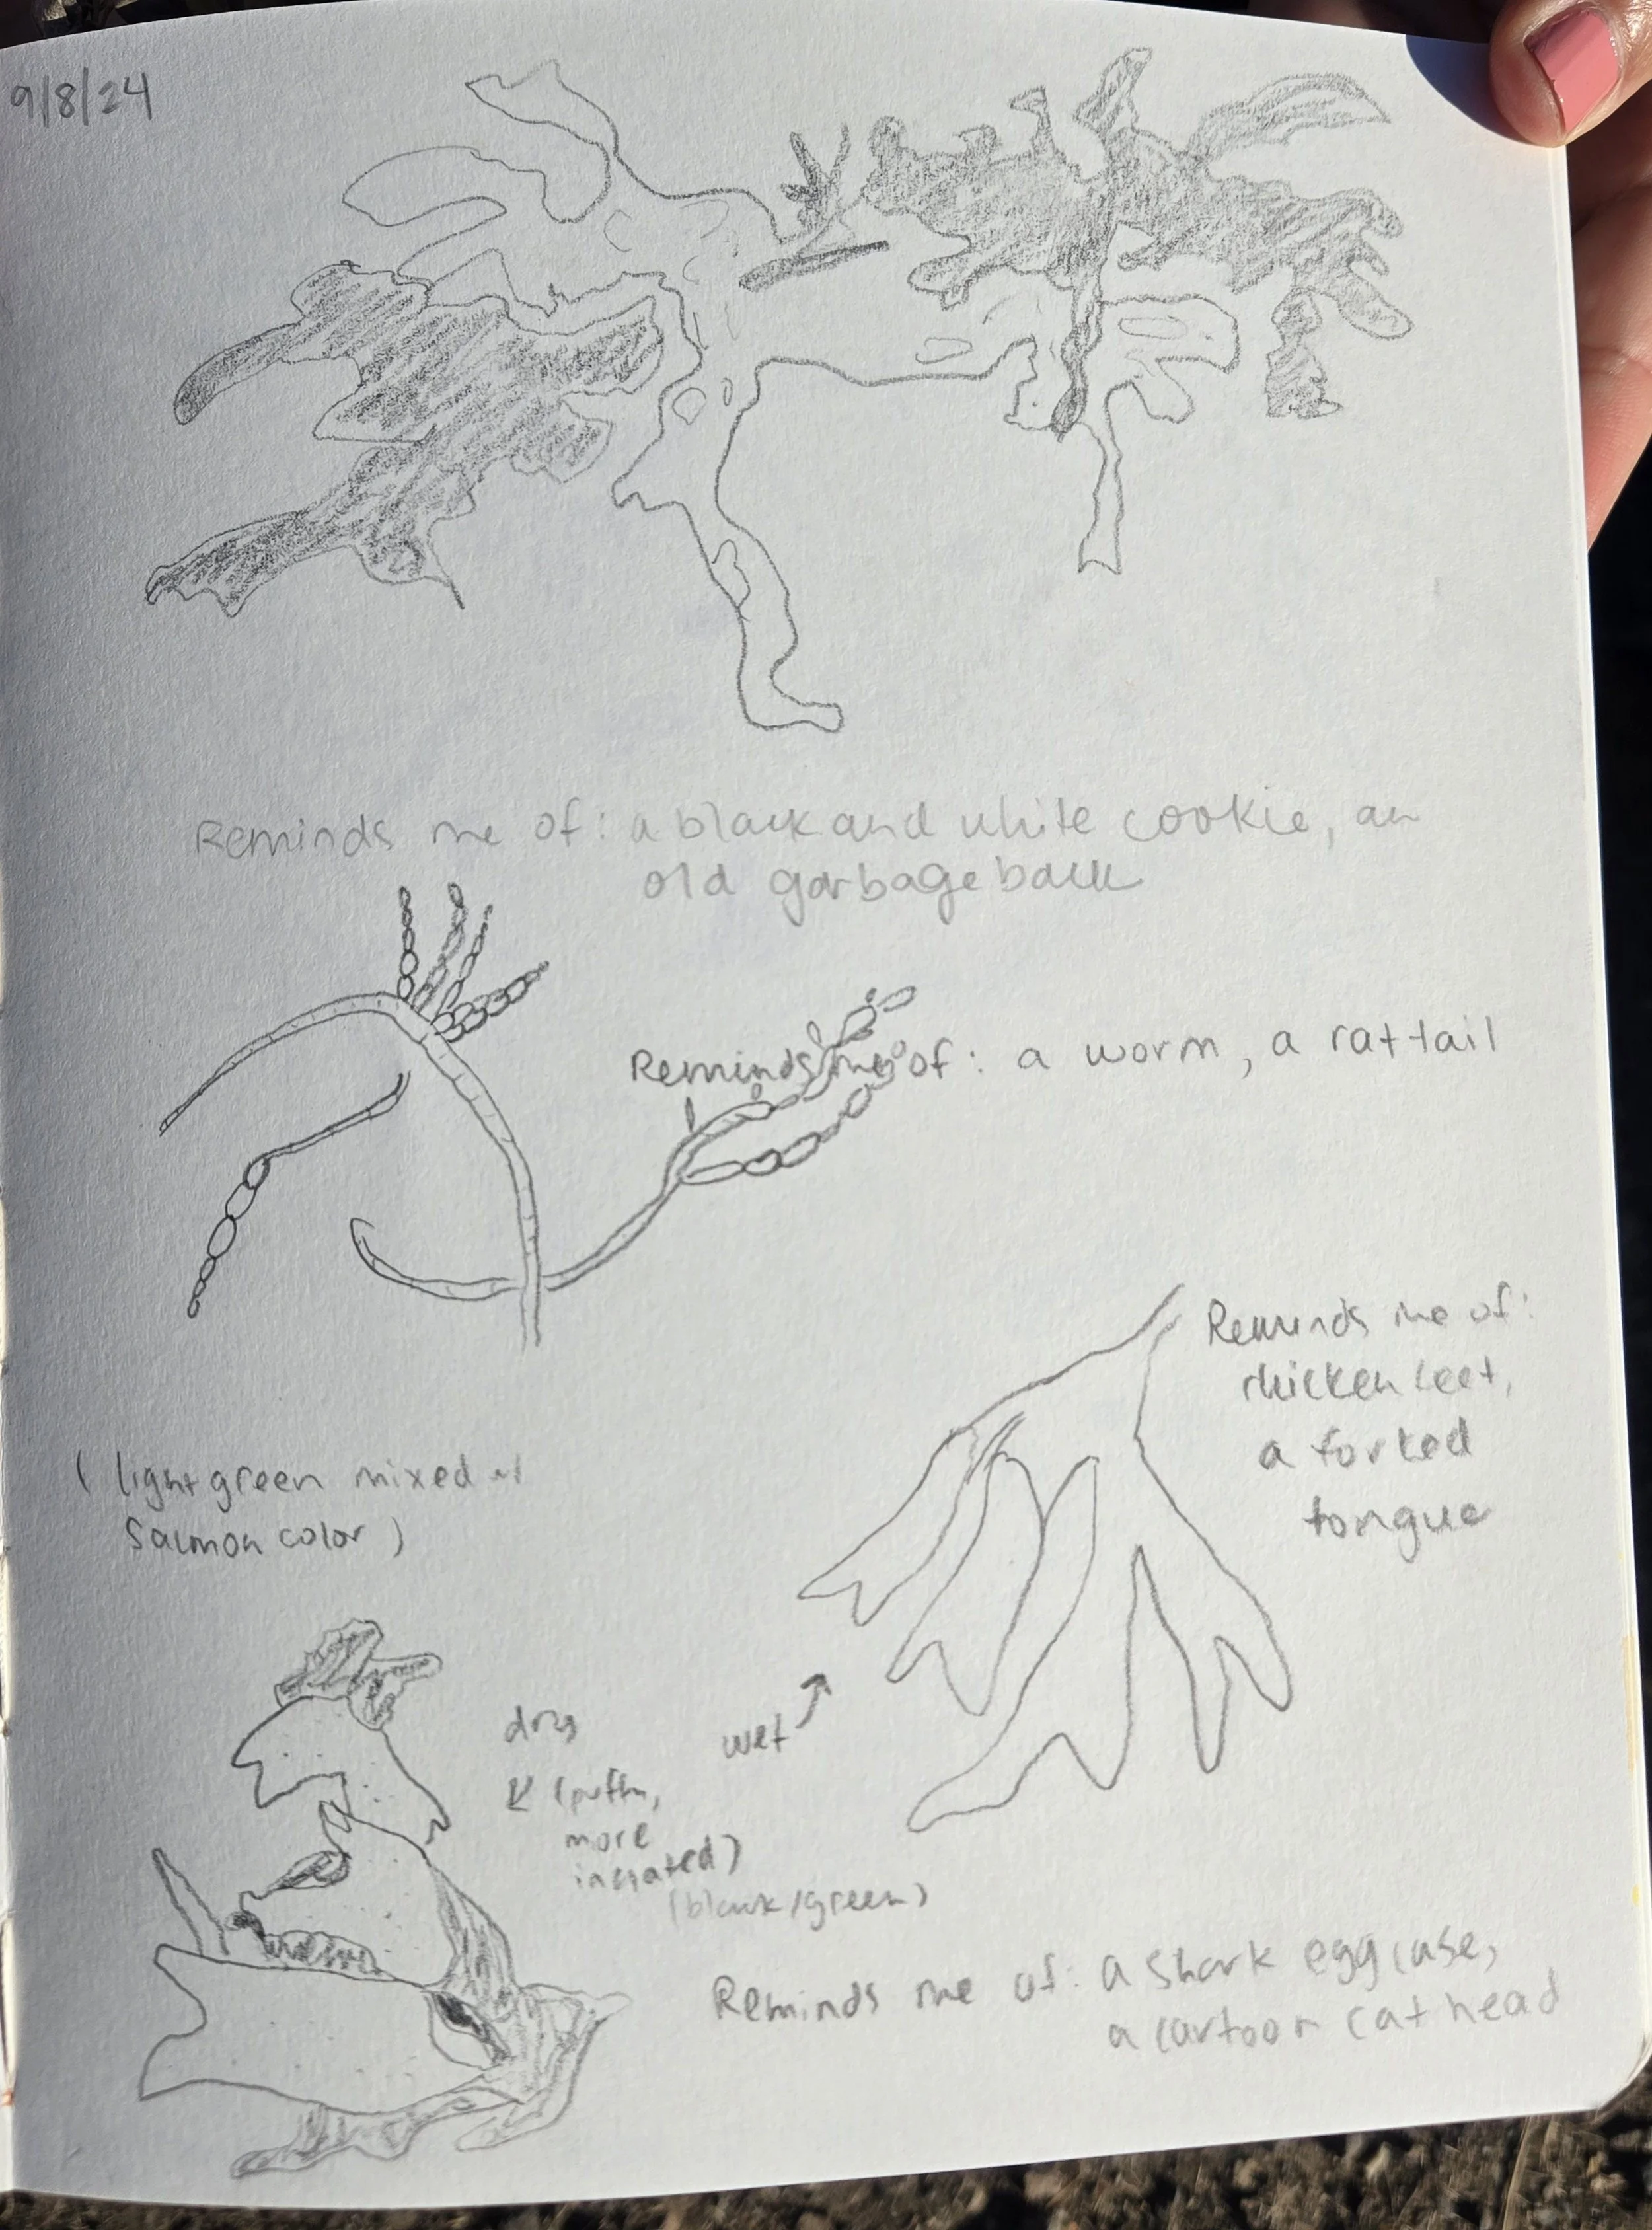 9/8/24
Reminds me of: a black and white cookie, an
old garbage back
Reminds me of: a worm, a rat tail
Reminds me of:
chicken feet,
a forked
tongue
( light green mixed w/
salmon color )
dry
wet
(puffy,
more
(black/green)
Reminds me of: a shark egg case,
a cartoon cat head